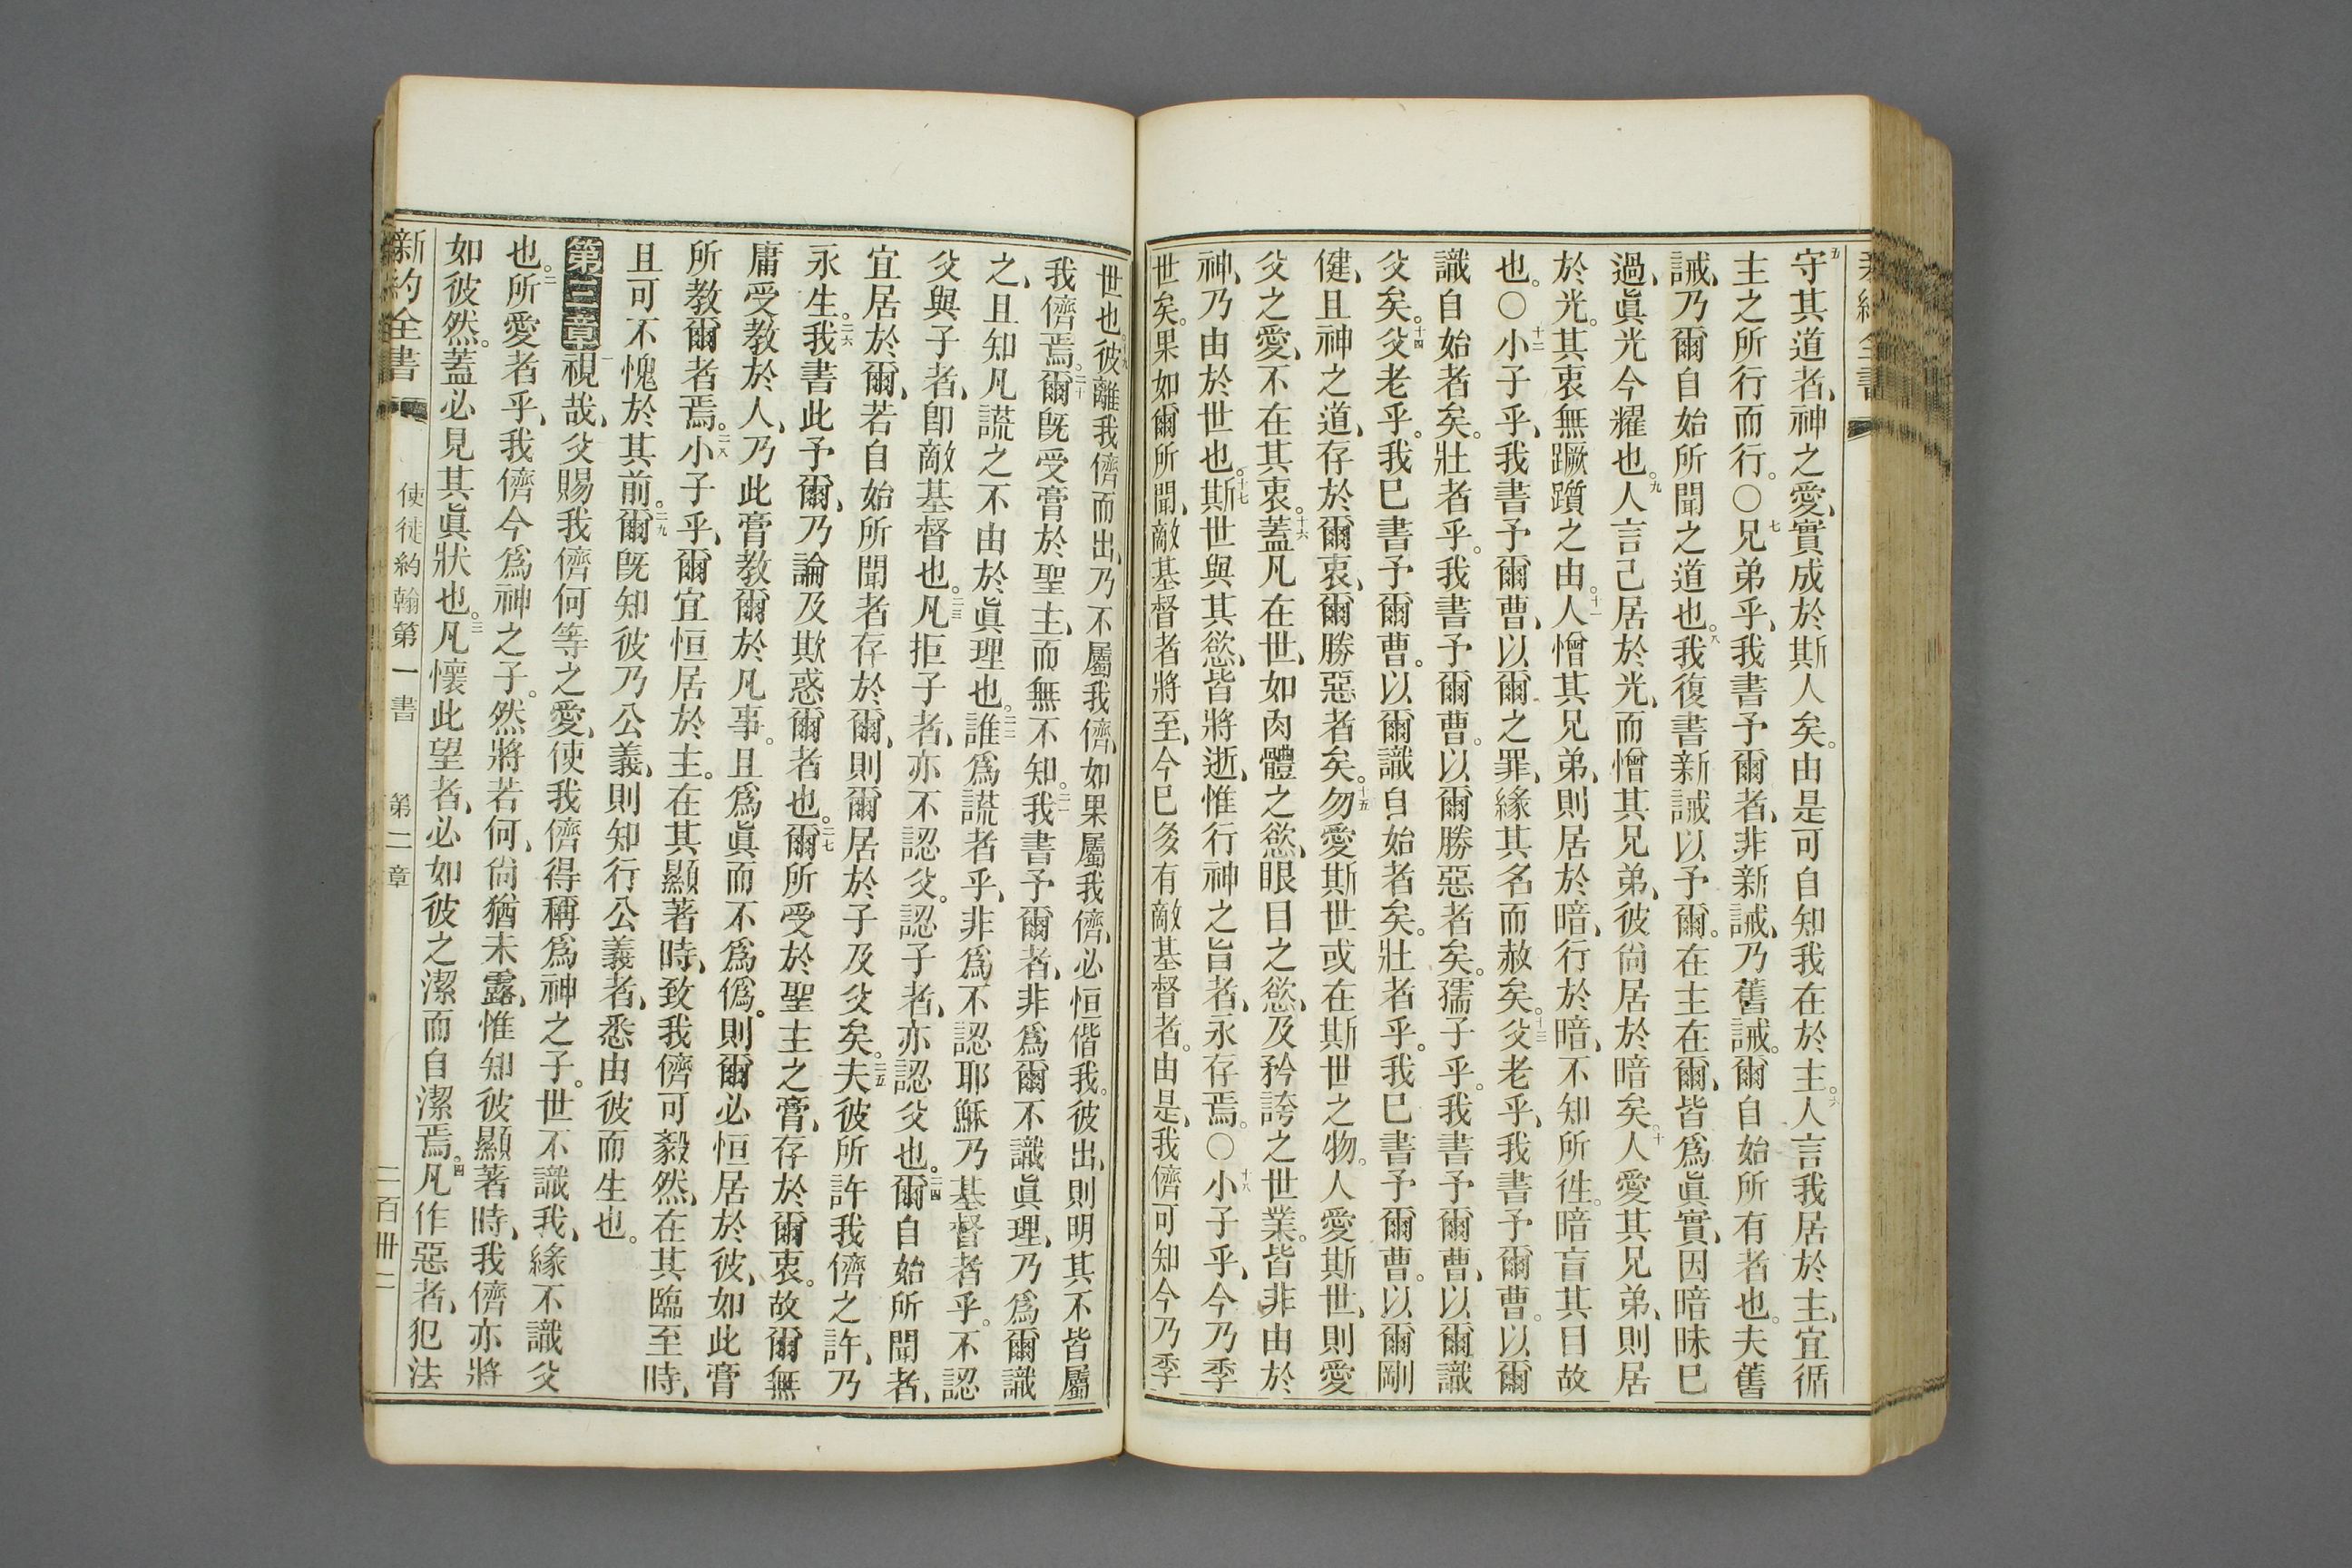 新約全書
五守其道者、神之愛、實成於斯人矣。由是可自知我在於主。六人言我居於主、宜循
主之所行而行。〇七兄弟乎、我書予爾者、非新誡、乃舊誡。爾自始所有者也。夫舊
誡、乃爾自始所聞之道也。八我復書新誡以予爾。在主在爾、皆爲眞實、因暗昧已
過、眞光今耀也。九人言己居於光、而憎其兄弟、彼尙居於暗矣。十人愛其兄弟、則居
於光。其衷無蹶躓之由。十一人憎其兄弟、則居於暗、行於暗、不知所徃。暗盲其目故
也。〇十二小子乎、我書予爾曹、以爾之罪、緣其名而赦矣。十三父老乎、我書予爾曹。以爾
識自始者矣。壯者乎。我書予爾曹。以爾勝惡者矣。孺子乎。我書予爾曹、以爾識
父矣。十四父老乎。我已書予爾曹。以爾識自始者矣。壯者乎。我已書予爾曹。以爾剛
健、且神之道、存於爾衷、爾勝惡者矣。十五勿愛斯世或在斯世之物。人愛斯世、則愛
父之愛、不在其衷。十六蓋凡在世、如肉體之慾、眼目之慾、及矜誇之世業。皆非由於
神、乃由於世也。十七斯世與其慾、皆將逝、惟行神之旨者、永存焉。〇十八小子乎、今乃季
世矣。果如爾所聞、敵基督者將至、今已多有敵基督者。由是、我儕可知今乃季
世也。十九彼離我儕而出、乃不屬我儕、如果屬我儕、必恒偕我。彼出、則明其不皆屬
我儕焉。二十爾旣受膏於聖主、而無不知。二一我書予爾者、非爲爾不識眞理、乃爲爾識
之、且知凡謊之不由於眞理也。二二誰爲謊者乎、非爲不認耶穌乃基督者乎。不認
父與子者、卽敵基督也。二三凡拒子者、亦不認父。認子者、亦認父也。二四爾自始所聞者、
宜居於爾、若自始所聞者存於爾、則爾居於子及父矣。二五夫彼所許我儕之許、乃
永生。二六我書此予爾、乃論及欺惑爾者也。二七爾所受於聖主之膏、存於爾衷。故爾無
庸受教於人、乃此膏教爾於凡事。且爲眞而不爲僞。則爾必恒居於彼、如此膏
所教爾者焉。二八小子乎、爾宜恒居於主。在其顯著時、致我儕可毅然、在其臨至時、
且可不愧於其前。二九爾旣知彼乃公義、則知行公義者、悉由彼而生也。
第三章一視哉、父賜我儕何等之愛、使我儕得稱爲神之子。世不識我、緣不識父
也。二所愛者乎、我儕今爲神之子。然將若何、尙猶未露、惟知彼顯著時、我儕亦將
如彼然。蓋必見其眞狀也。三凡懷此望者、必如彼之潔而自潔焉。四凡作惡者、犯法
新約全書 使徒約翰第一書 第二章 二百卌二